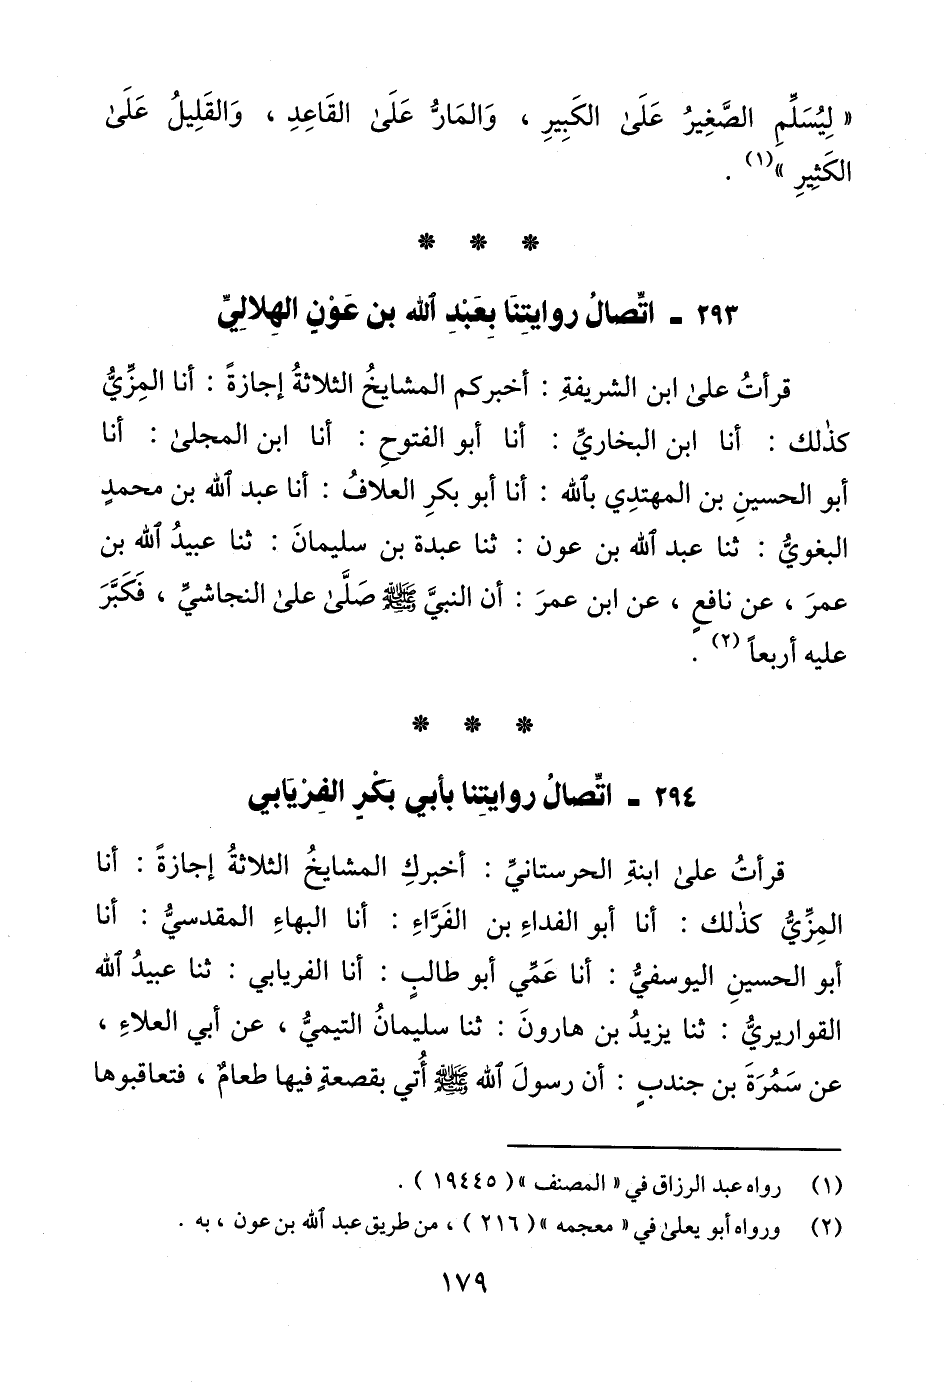 « لِيُسَلِّمِ الصَّغِيرُ عَلَى الكَبِيرِ ، وَالمَارُّ عَلَى القَاعِدِ ، وَالقَلِيلُ عَلَى
الكَثِيرِ »(١) .
* * *
٢٩٣ ـ اتِّصالُ روايتِنَا بِعَبْدِ الله بن عَوْنٍ الهِلاليِّ
قرأتُ على ابن الشريفةِ : أخبركم المشايخُ الثلاثةُ إجازةً : أنا المِزِّيُّ
كذٰلك : أنا ابن البخاريِّ : أنا أبو الفتوحِ : أنا ابن المجلى : أنا
أبو الحسينِ بن المهتدِي بالله : أنا أبو بكرِ العلافُ : أنا عبد الله بن محمدٍ
البغويُّ : ثنا عبد الله بن عون : ثنا عبدة بن سليمانَ : ثنا عبيدُ الله بن
عمرَ ، عن نافعٍ ، عن ابن عمرَ : أن النبيَّ ﷺ صَلَّى على النجاشيِّ ، فَكَبَّرَ
عليه أربعاً (٢) .
* * *
٢٩٤ ـ اتِّصالُ روايتِنا بأبي بَكْرٍ الفِرْيَابي
قرأتُ على ابنةِ الحرستانيِّ : أخبركِ المشايخُ الثلاثةُ إجازةً : أنا
المِزِّيُّ كذٰلك : أنا أبو الفداءِ بن الفَرَّاءِ : أنا البهاءِ المقدسيُّ : أنا
أبو الحسينِ اليوسفيُّ : أنا عَمِّي أبو طالبٍ : أنا الفريابي : ثنا عبيدُ الله
القواريريُّ : ثنا يزيدُ بن هارونَ : ثنا سليمانُ التيميُّ ، عن أبي العلاءِ ،
عن سَمُرَةَ بن جندبٍ : أن رسولَ الله ﷺ أُتي بقصعةٍ فيها طعامٌ ، فتعاقبوها
(١) رواه عبد الرزاق في « المصنف » ( ١٩٤٤٥ ) .
(٢) ورواه أبو يعلى في « معجمه » ( ٢١٦ ) ، من طريق عبد الله بن عون ، به .
١٧٩